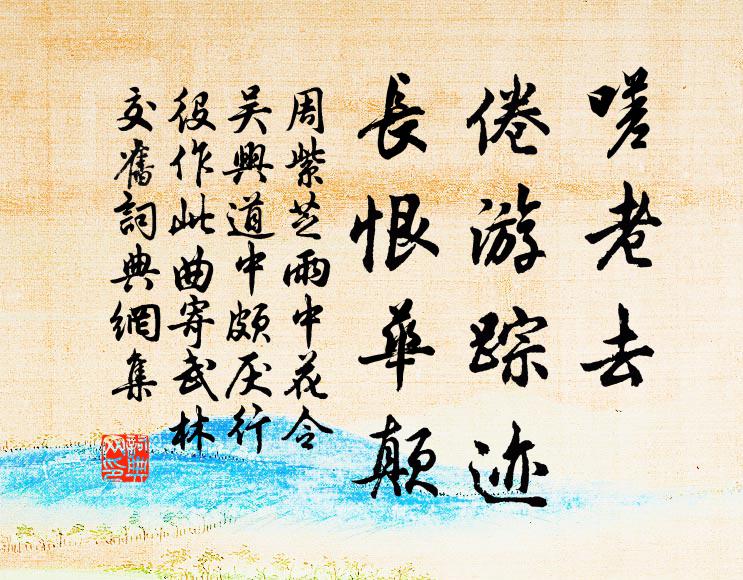 嗟老去
倦游踪迹
長恨華颠
周紫芝雨中花令
吴興道中颇厌行
役作此曲寄武林
交舊詞典網集